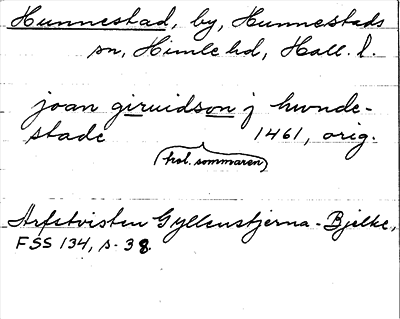 Hunnestad, by, Hunnestads
sn, Himle hd, Hall. l.
joan giruidson j hwnde-
stade 1461, orig.
(hol. sommaren)
Arfstvisten Gyllenstjerna-Bjelke,
FSS 134, s. 38.